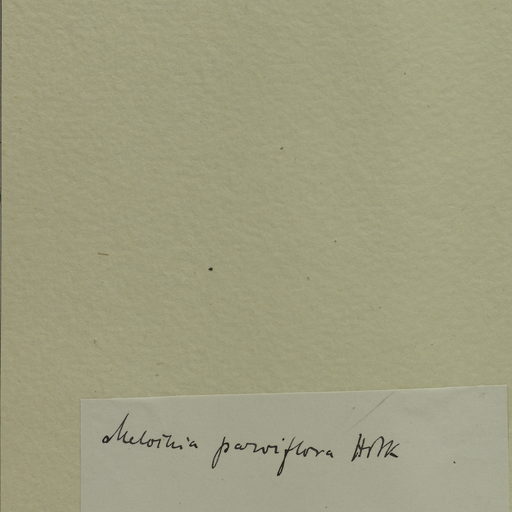 Melochia parviflora HBK